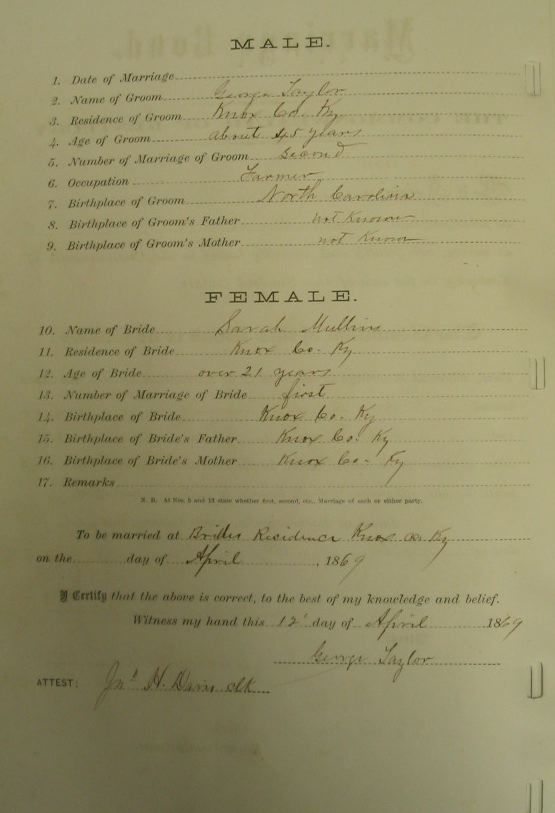 MALE.
1. Date of Marriage
2. Name of Groom George Taylor
3. Residence of Groom Knox Co. Ky
4. Age of Groom about 45 years
5. Number of Marriage of Groom second
6. Occupation Farmer
7. Birthplace of Groom North Carolina
8. Birthplace of Groom's Father not Known
9. Birthplace of Groom's Mother not Known
FEMALE.
10. Name of Bride Sarah Mullins
11. Residence of Bride Knox Co. Ky
12. Age of Bride over 21 years
13. Number of Marriage of Bride first
14. Birthplace of Bride Knox Co. Ky
15. Birthplace of Bride's Father Knox Co. Ky
16. Birthplace of Bride's Mother Knox Co. Ky
17. Remarks
N. B. At Nos. 5 and 13 state whether first, second, etc., Marriage of each or either party.
To be married at Brides Residence Knox Co Ky
on the day of April, 1869
I Certify that the above is correct, to the best of my knowledge and belief.
Witness my hand this 12 day of April 1869
George Taylor
ATTEST: Jno H. Davis clk